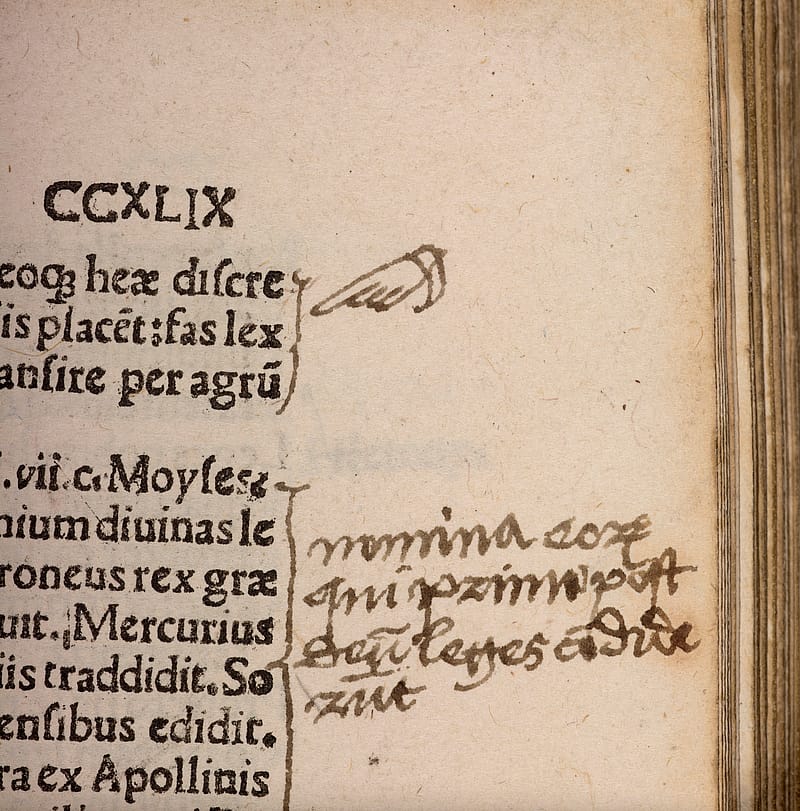 CCXLIX
eoqꝫ heæ diſcre
iis placēt:fas lex
anſire per agrū
.vii.c. Moyſes
nium diuinas le
roneus rex græ
uit. Mercurius
iis traddidit. So
enſibus edidit.
ra ex Apollinis
nomina eoꝝ
qui primū poſt
deū leges cōdide
rūt